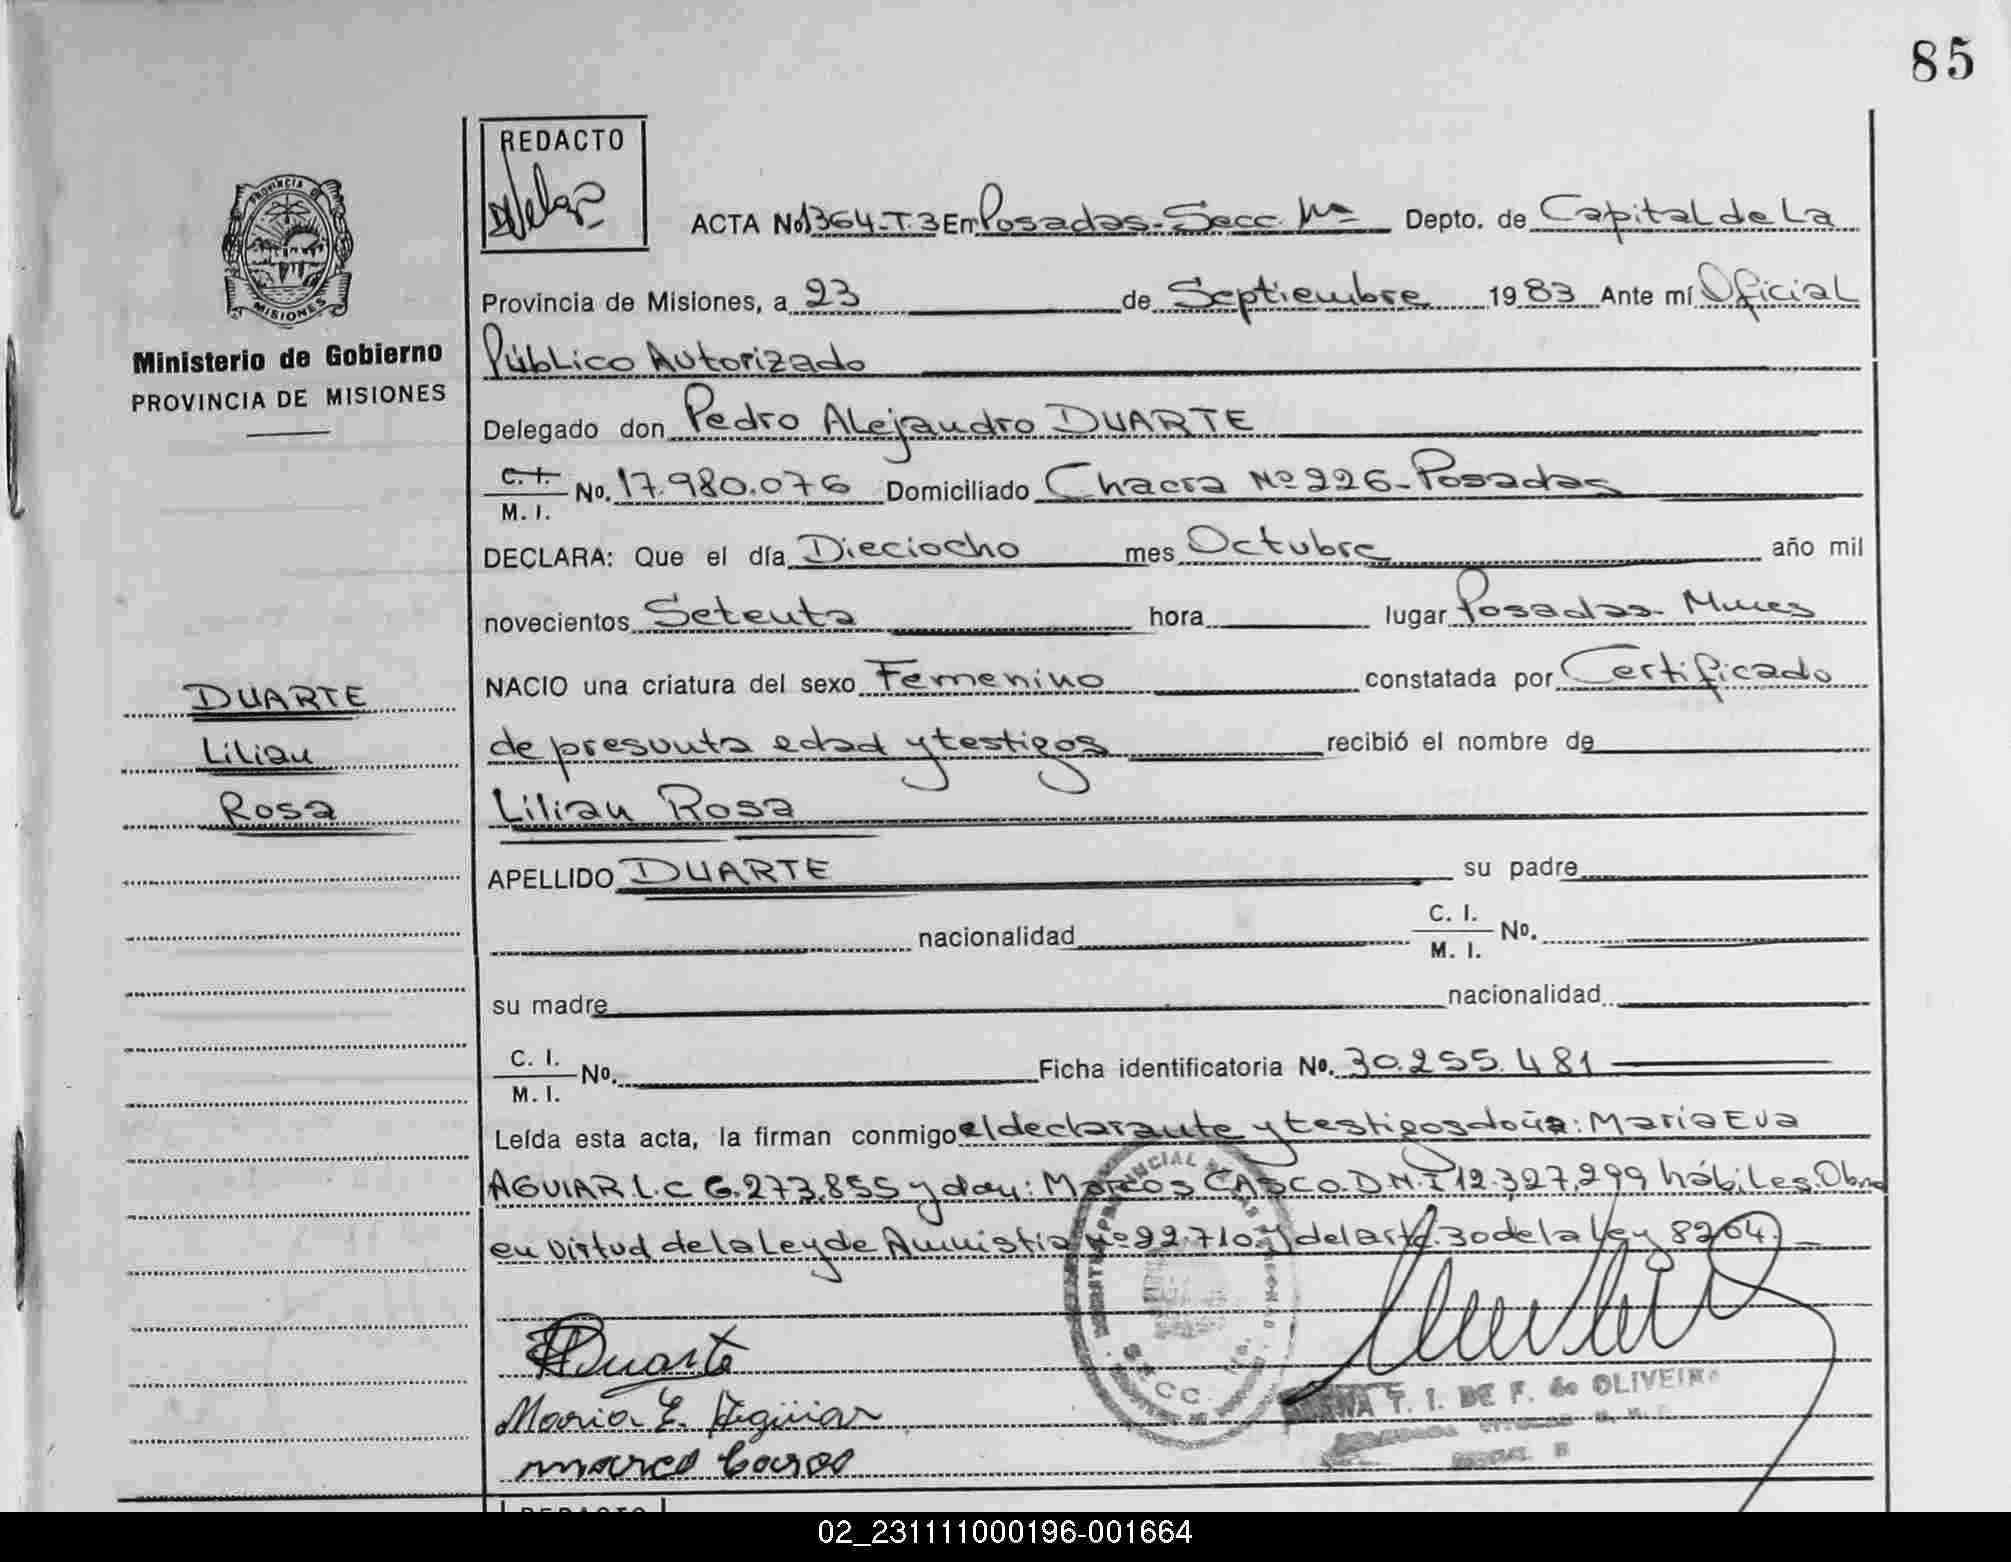 85
REDACTO
ACTA No. 1364-T.3 En Posadas-Secc. 1ª Depto. de Capital de La
Provincia de Misiones, a 23 de Septiembre 1983 Ante mí Oficial
Público Autorizado
Delegado don Pedro Alejandro DUARTE
C. I. M. I. No. 17.980.076 Domiciliado Chacra Nº 226-Posadas
DECLARA: Que el día Dieciocho mes Octubre año mil
novecientos Setenta hora lugar Posadas-Mnes
NACIO una criatura del sexo Femenino constatada por Certificado
de presunta edad y testigos recibió el nombre de
Lilian Rosa
APELLIDO DUARTE su padre
nacionalidad C. I. M. I. No.
su madre nacionalidad
C. I. M. I. No. Ficha identificatoria No. 30.255.481
Leída esta acta, la firman conmigo el declarante y testigos doña: María Eva
AGUIAR L.C 6.273.855 y don: Marcos CASCO D.N.I 12.327.299 hábiles. Obra
en virtud de la Ley de Amnistía nº 22.710 y del artc. 30 de la Ley 8204.
Duarte
Maria E. Aguiar
PROVINCIA DE
MISIONES
Ministerio de Gobierno
PROVINCIA DE MISIONES
DUARTE
Lilian
Rosa
SECC.
T. I. DE F. de OLIVEIRA
REDACTO
02_231111000196-001664